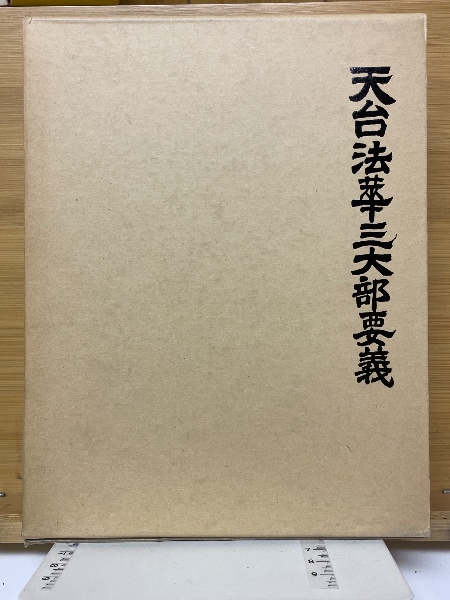 天台法華三大部要義